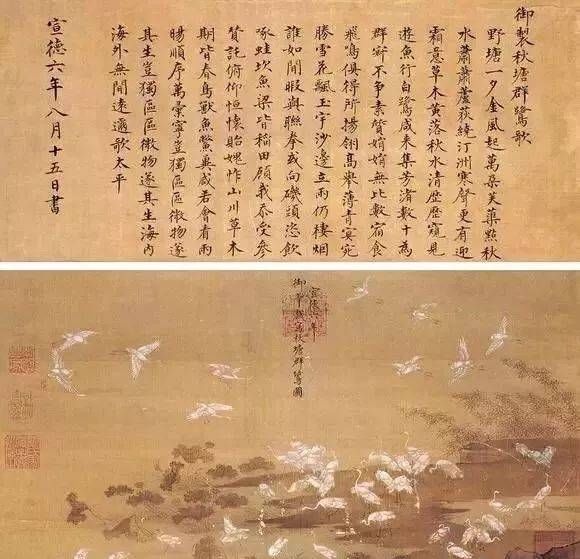 御製秋塘群鷺歌
野塘一夕金風起萬朶芙蕖點秋
水蕭蕭蘆荻繞汀洲寒聲更有迎
霜意草木黃落秋水清歷歷寬見
遊魚行白鷺咸来集芳渚數十為
群寧不爭素質娟娟無比數宿食
飛鳴俱得所揚翎高舉薄青冥宛
勝雪花飄玉宇沙邊立雨仍棲烟
誰如閒暇與聯拳或向磯頭恣飲
啄蛙坎魚梁皆稻田顧我忝受參
贊託俯仰恒懷貽媿怍山川草木
期皆春鳥獸魚鱉冀咸若會看雨
暘順序萬彙寧豈獨區區微物遂
其生豈獨區區微物遂其生海内
海外無間遠邇歌太平
宣德六年八月十五日書
宣德六年
御筆戲寫秋塘群鷺圖